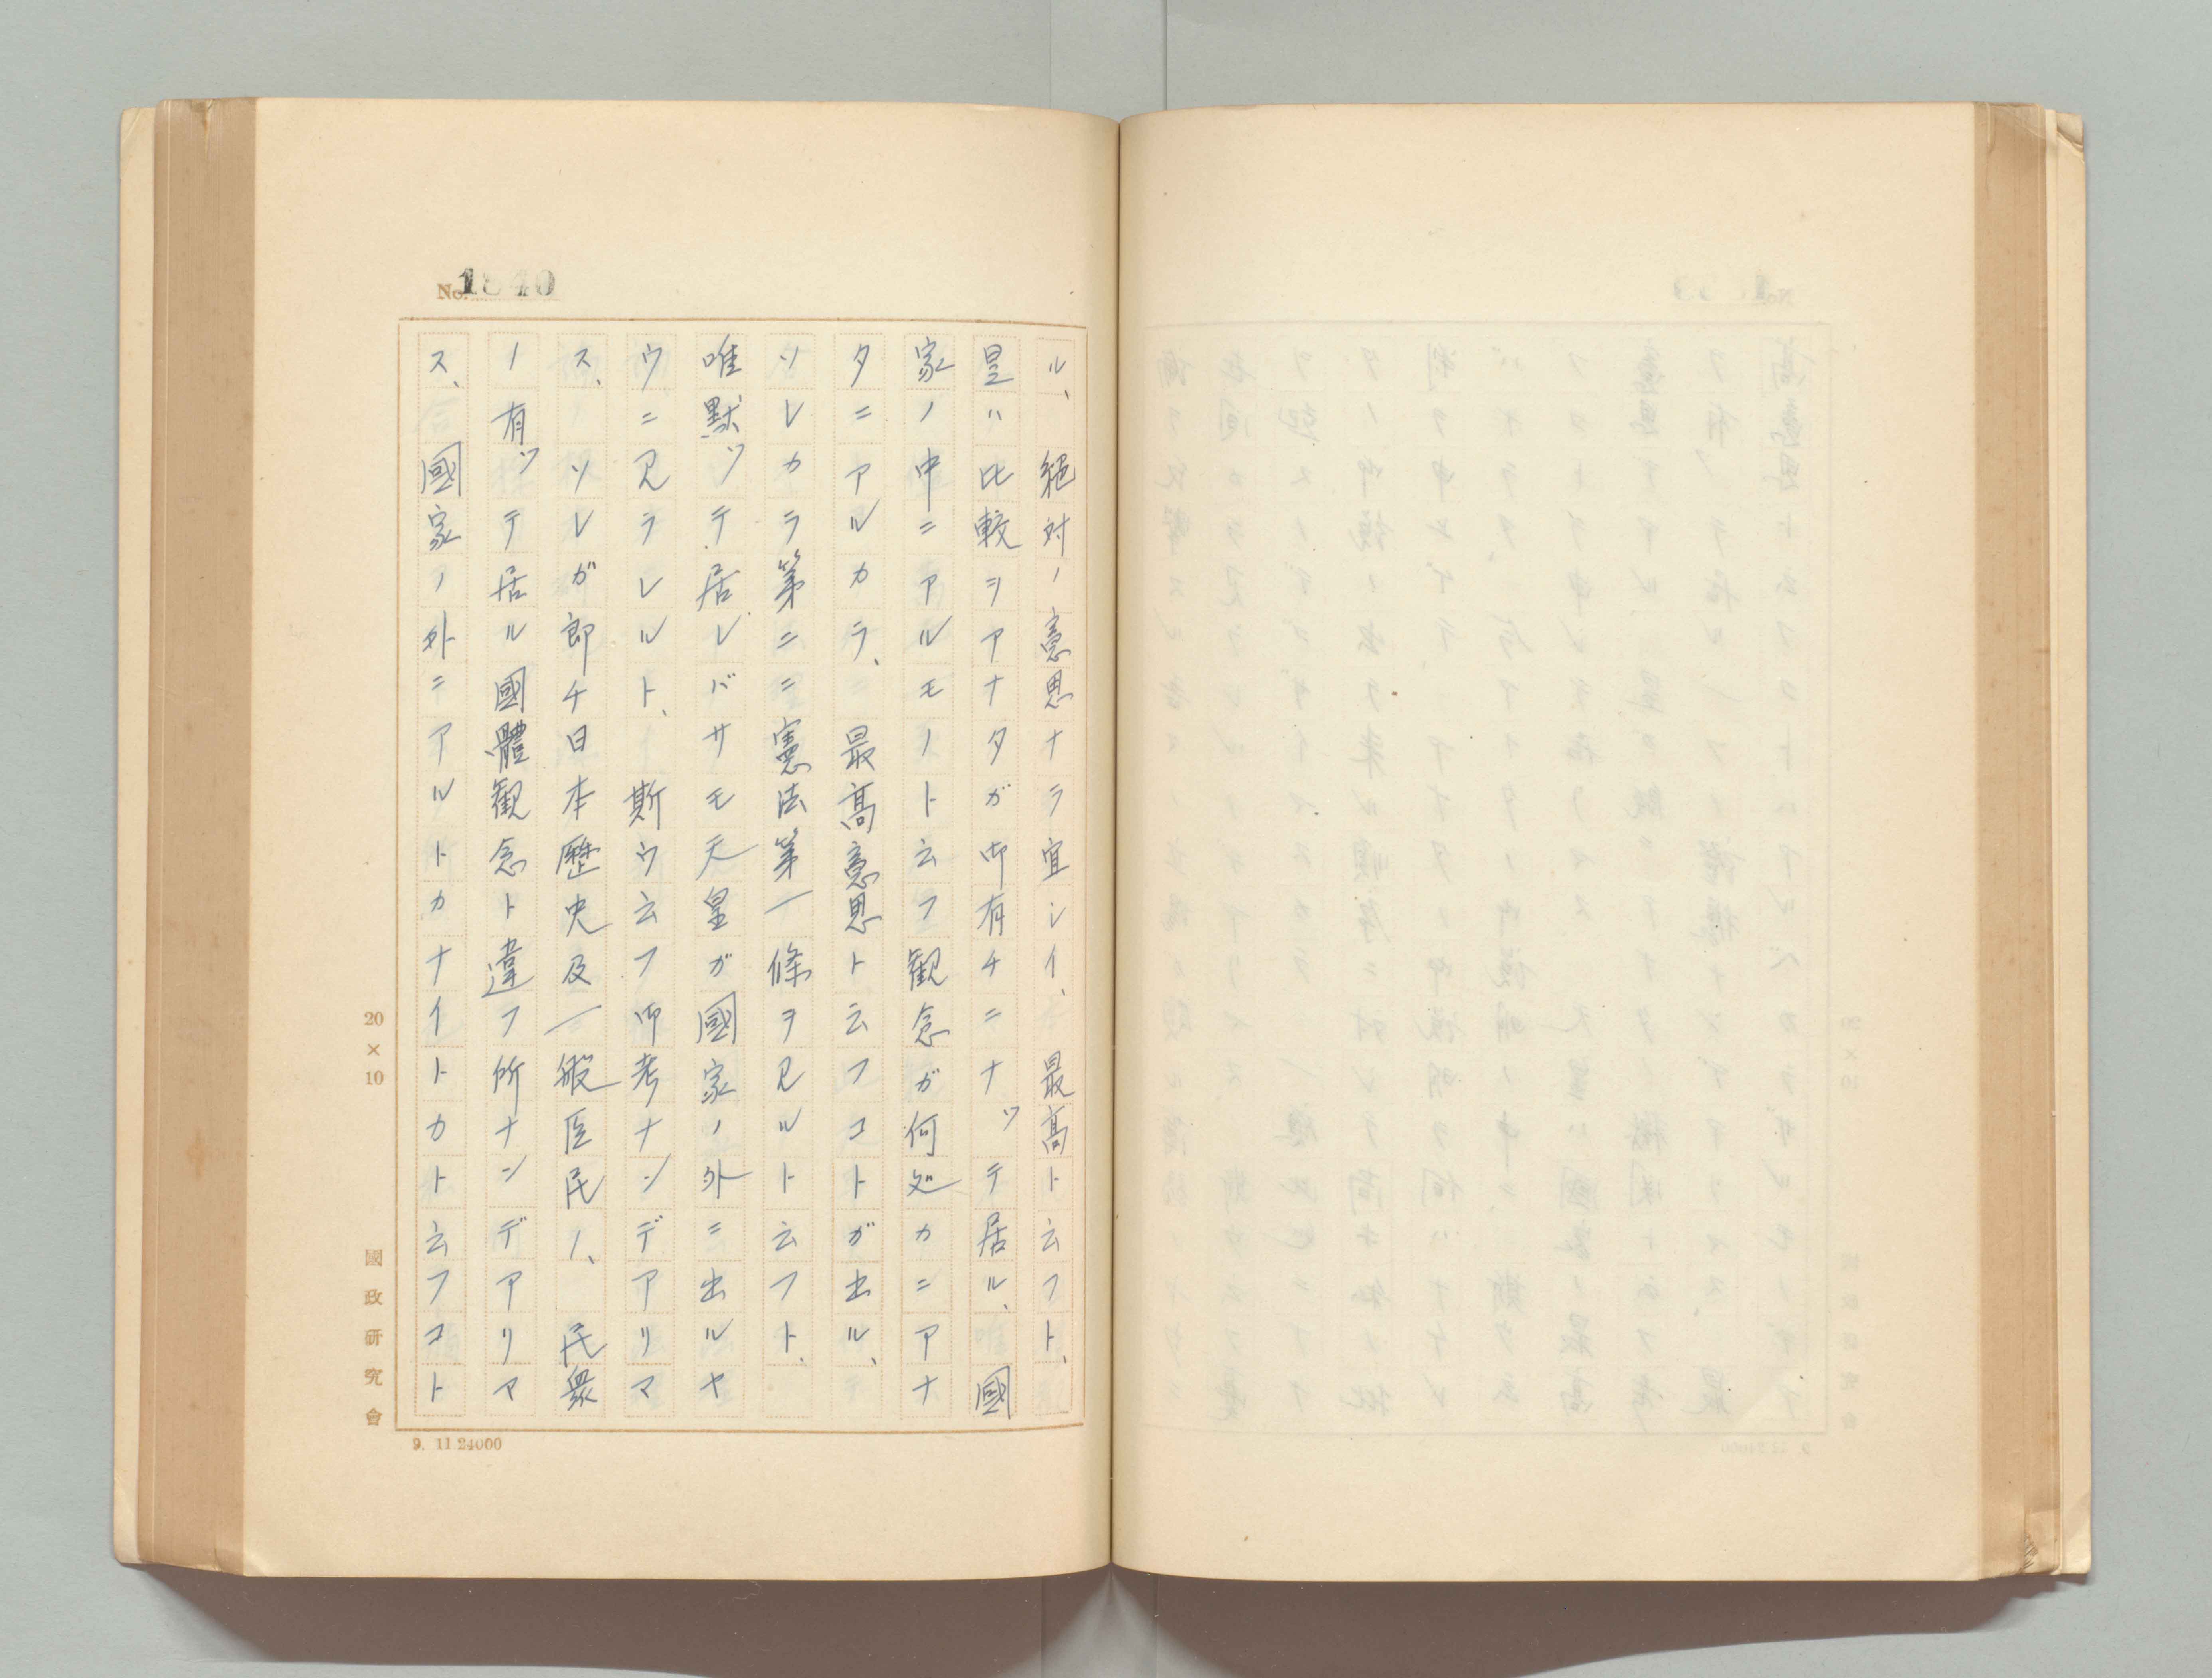 No. 1840
ル、絶対ノ意思ナラ宜シイ、最高ト云フト、
是ハ比較ヲアナタガ御有チニナッテ居ル、國
家ノ中ニアルモノト云フ観念ガ何処カニアナ
タニアルカラ、最高意思ト云フコトガ出ル、
ソレカラ第二ニ憲法第一條ヲ見ルト云フト、
唯默ッテ居レバサモ天皇ガ國家ノ外ニ出ルヤ
ウニ見ラレルト、斯ウ云フ御考ナンデアリマ
ス、ソレガ即チ日本歷史及一般臣民ノ、民衆
ノ有ッテ居ル國體観念ト違フ所ナンデアリマ
ス、國家ノ外ニアルトカナイトカト云フコト
20×10
國政研究會
9. 11 24000